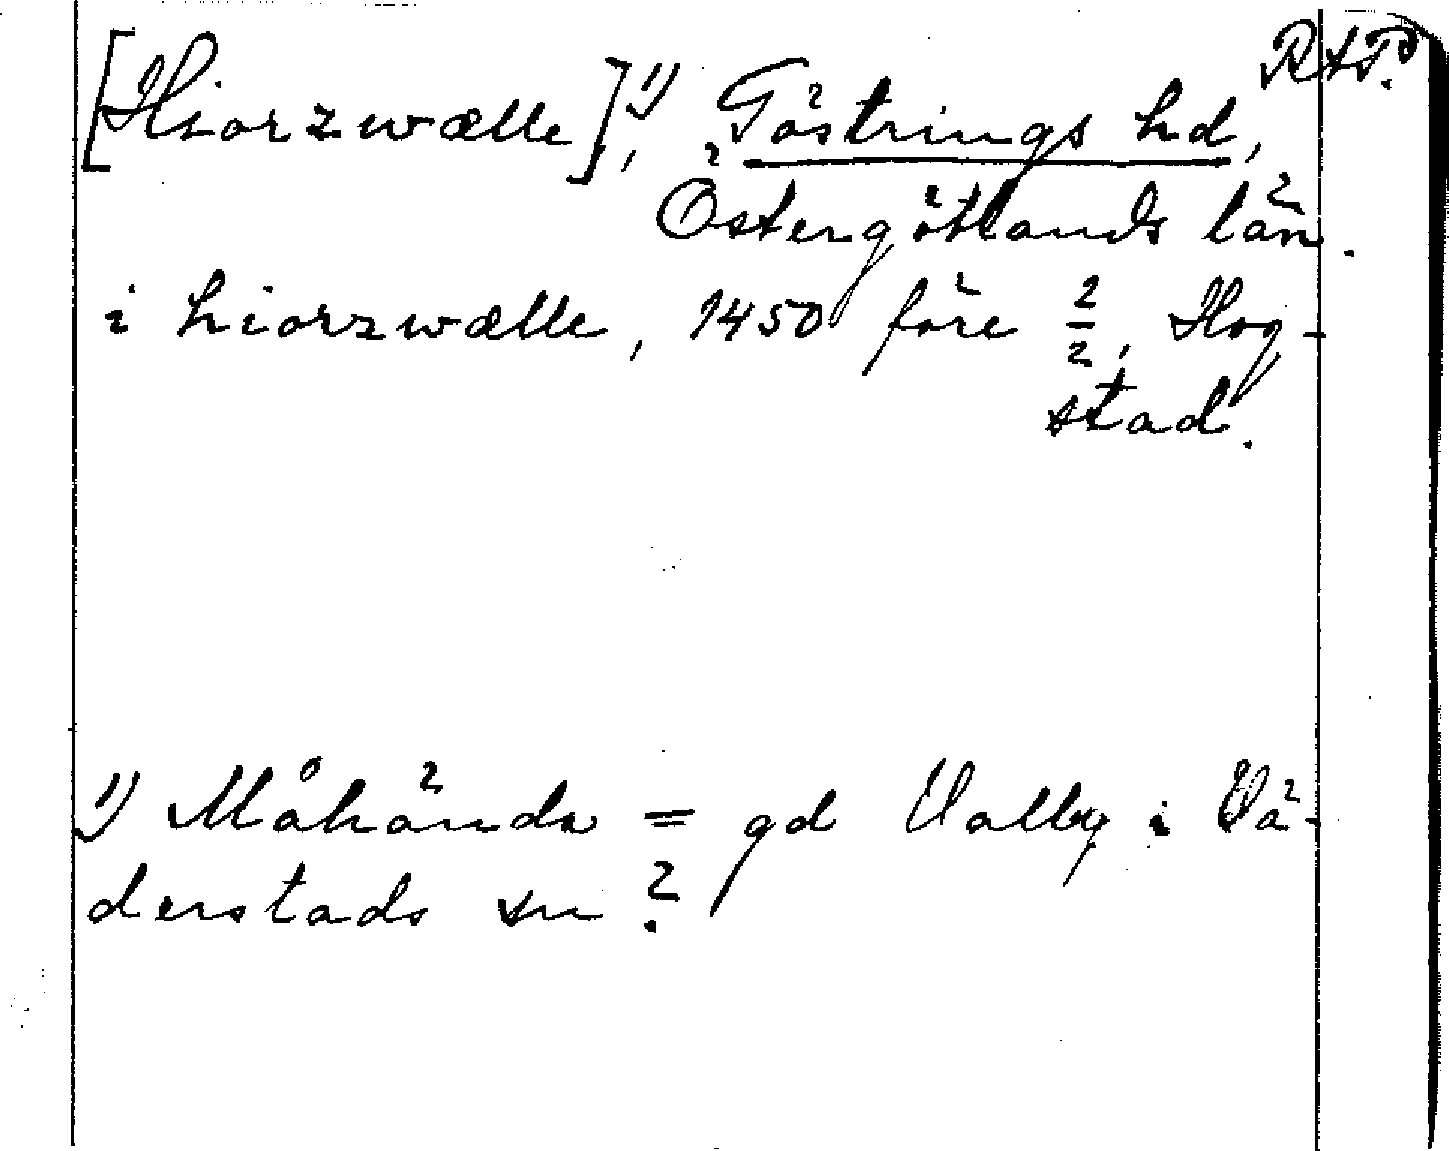 RAP.
[Hiorzwælle],¹⁾ Göstrings hd,
Östergötlands län.
i hiorzwælle, 1450 före 2/2, Hog-
stad.
¹⁾ Måhända = gd Valby i Vä-
derstads sn?